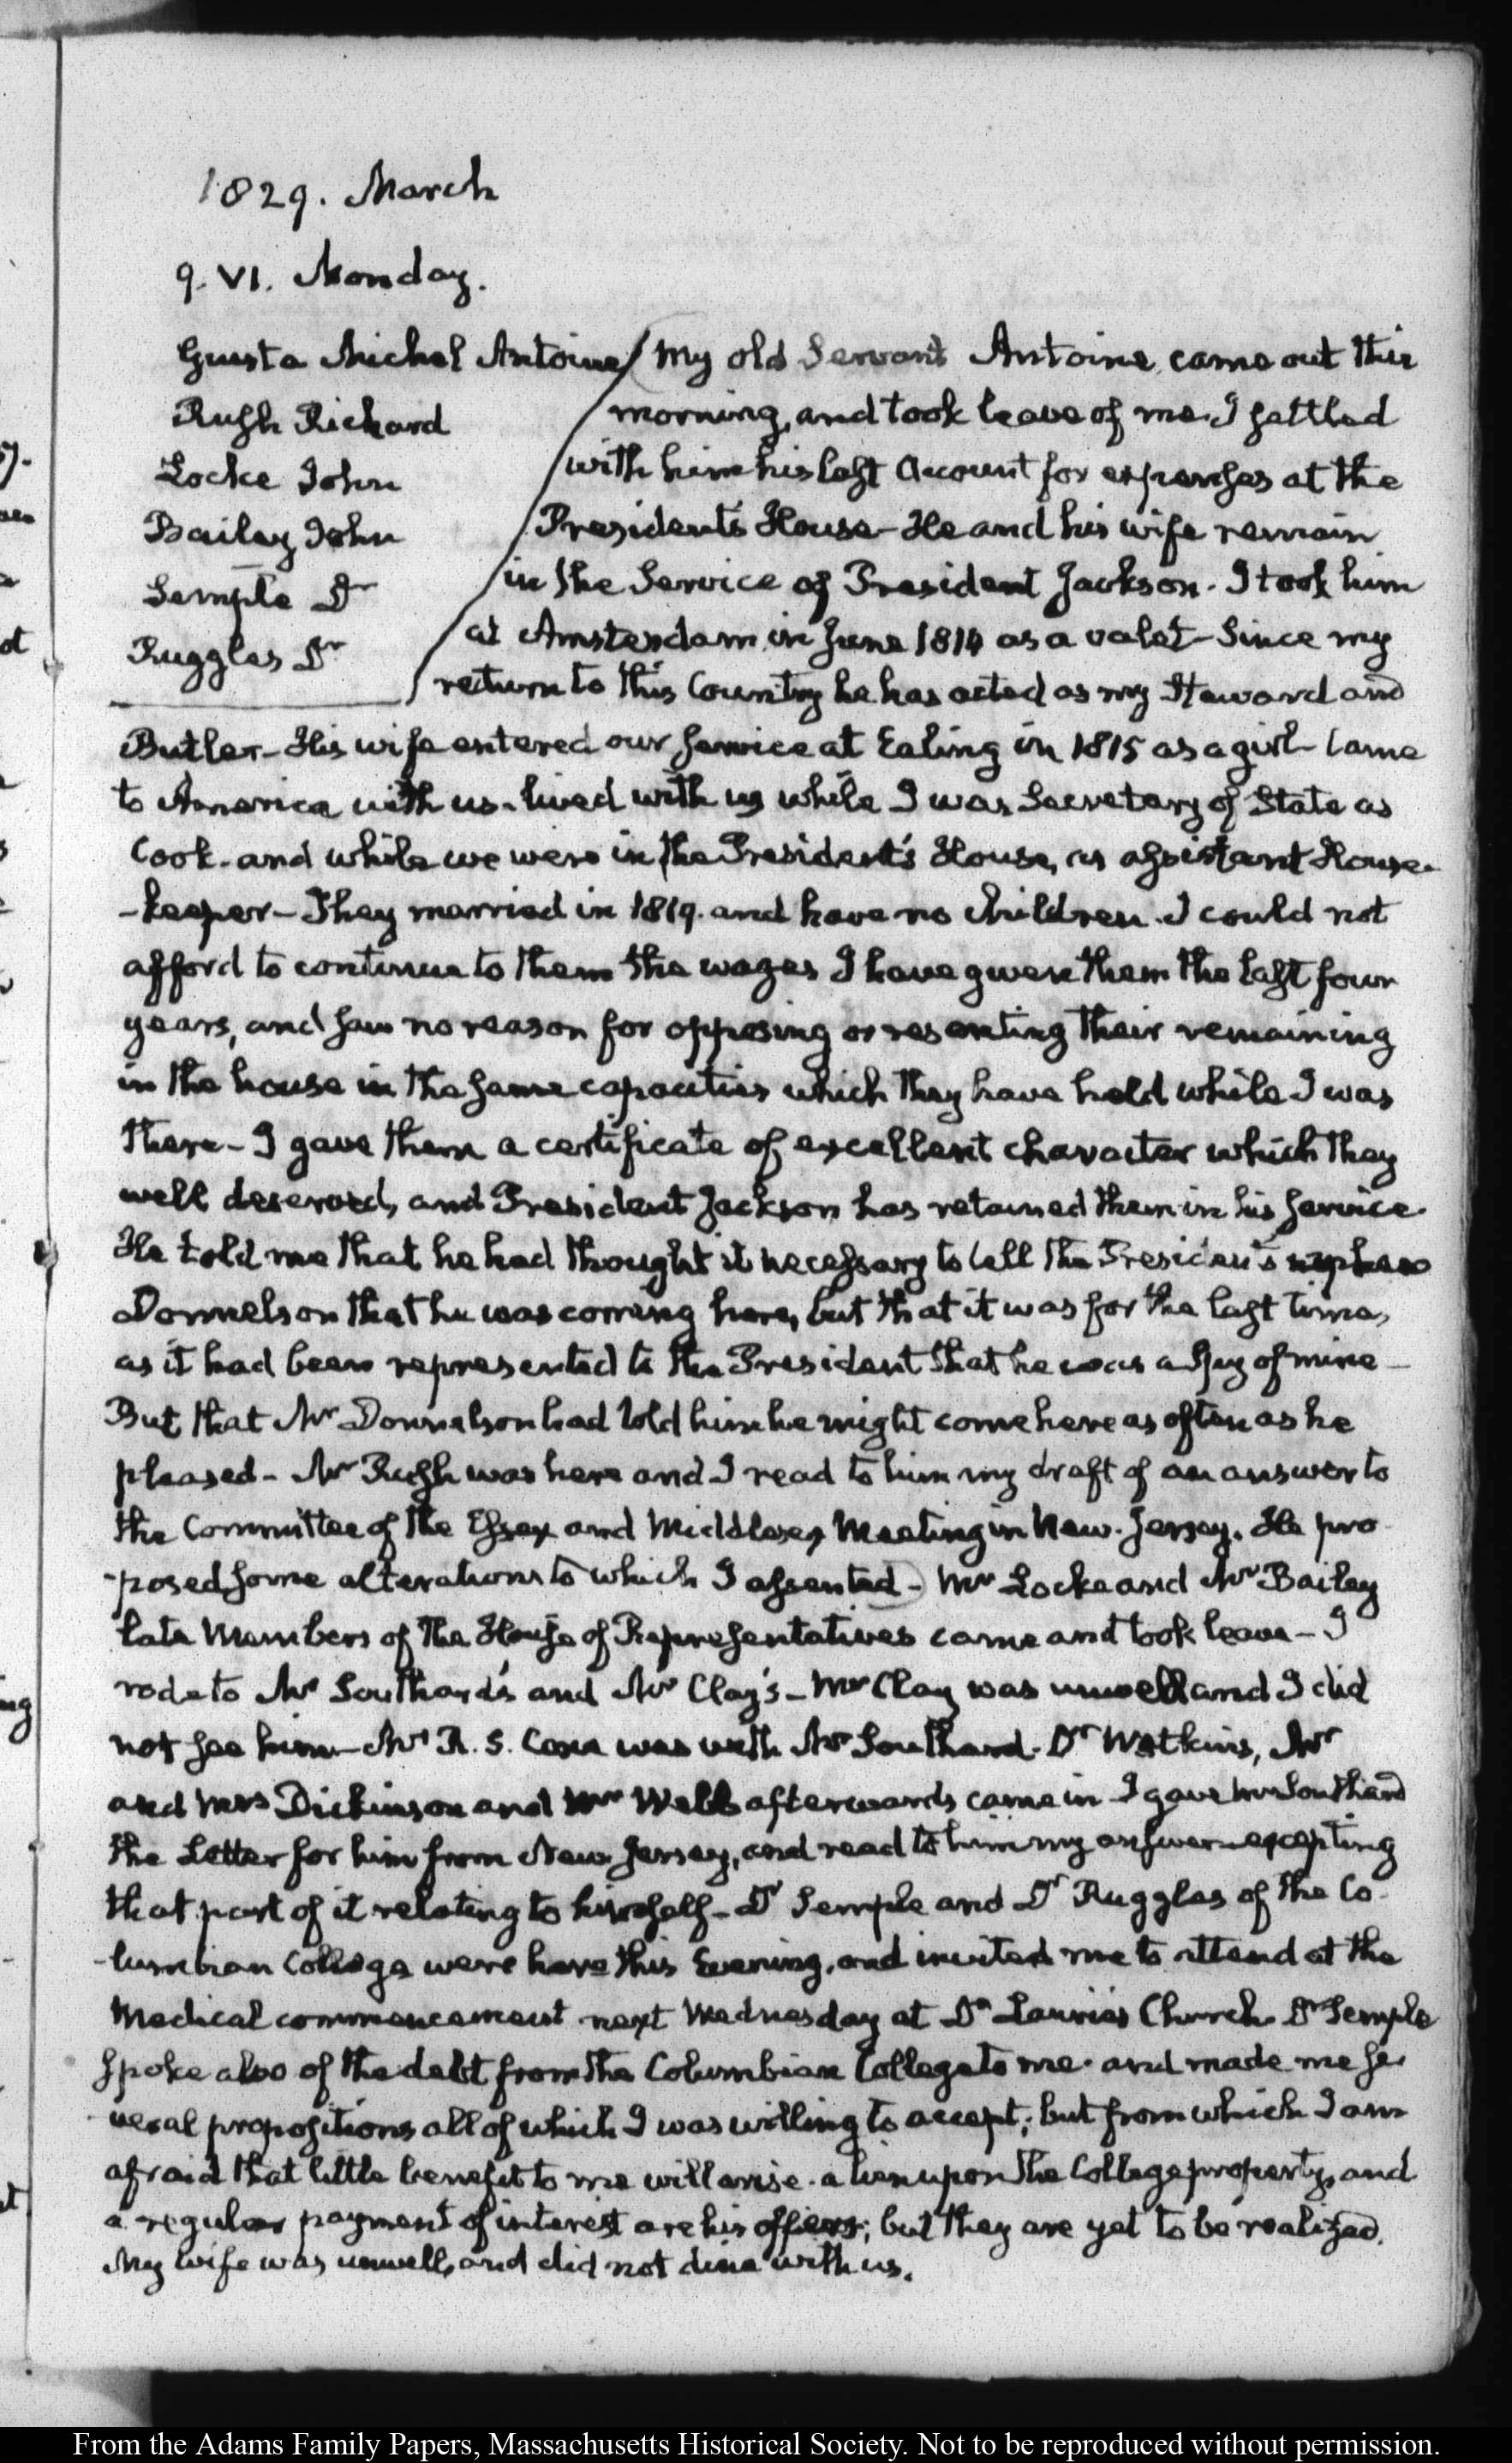 1829. March
9. VI. Monday.
Giusta Michel Antoine
Rush Richard
Locke John
Bailey John
Semple Dr
Ruggles Dr
My old Servant Antoine came out this
morning, and took leave of me. I settled
with him his last Account for expenses at the
President's House - He and his wife remain
in the Service of President Jackson. I took him
at Amsterdam in June 1814 as a valet - Since my
return to this Country he has acted as my Steward and
Butler - His wife entered our service at Ealing in 1815 as a girl - Came
to America with us - lived with us while I was Secretary of State as
Cook - and while we were in the President's House, as assistant House-
-keeper - They married in 1819. and have no children. I could not
afford to continue to them the wages I have given them the last four
years, and saw no reason for opposing or resenting their remaining
in the house in the same capacities which they have held while I was
there - I gave them a certificate of excellent character which they
well deserved, and President Jackson has retained them in his service.
He told me that he had thought it necessary to tell the President's nephew
Donnelson that he was coming here, but that it was for the last time,
as it had been represented to the President that he was a spy of mine -
But that Mr Donnelson had told him he might come here as often as he
pleased - Mr Rush was here and I read to him my draft of an answer to
the Committee of the Essex and Middlesex Meeting in New-Jersey. He pro-
-posed some alterations to which I assented - Mr Locke and Mr Bailey
late Members of the House of Representatives came and took leave - I
rode to Mr Southard's and Mr Clay's - Mr Clay was unwell and I did
not see him - Mr R. S. Coxe was with Mr Southard. Dr Watkins, Mr
and Mrs Dickinson and Webb afterwards came in I gave Mr Southard
the Letter for him from New Jersey, and read to him my answer excepting
that part of it relating to himself - Dr Semple and Dr Ruggles of the Co-
-lumbian College were here this Evening, and invited me to attend at the
Medical commencement next Wednesday at Dr Laurie's Church. Dr Semple
spoke also of the debt from the Columbian College to me. and made me se-
veral propositions all of which I was willing to accept; but from which I am
afraid that little benefit to me will arise. a lien upon the College property, and
a regular payment of interest are his offers; but they are yet to be realized.
My wife was unwell, and did not dine with us.
From the Adams Family Papers, Massachusetts Historical Society. Not to be reproduced without permission.